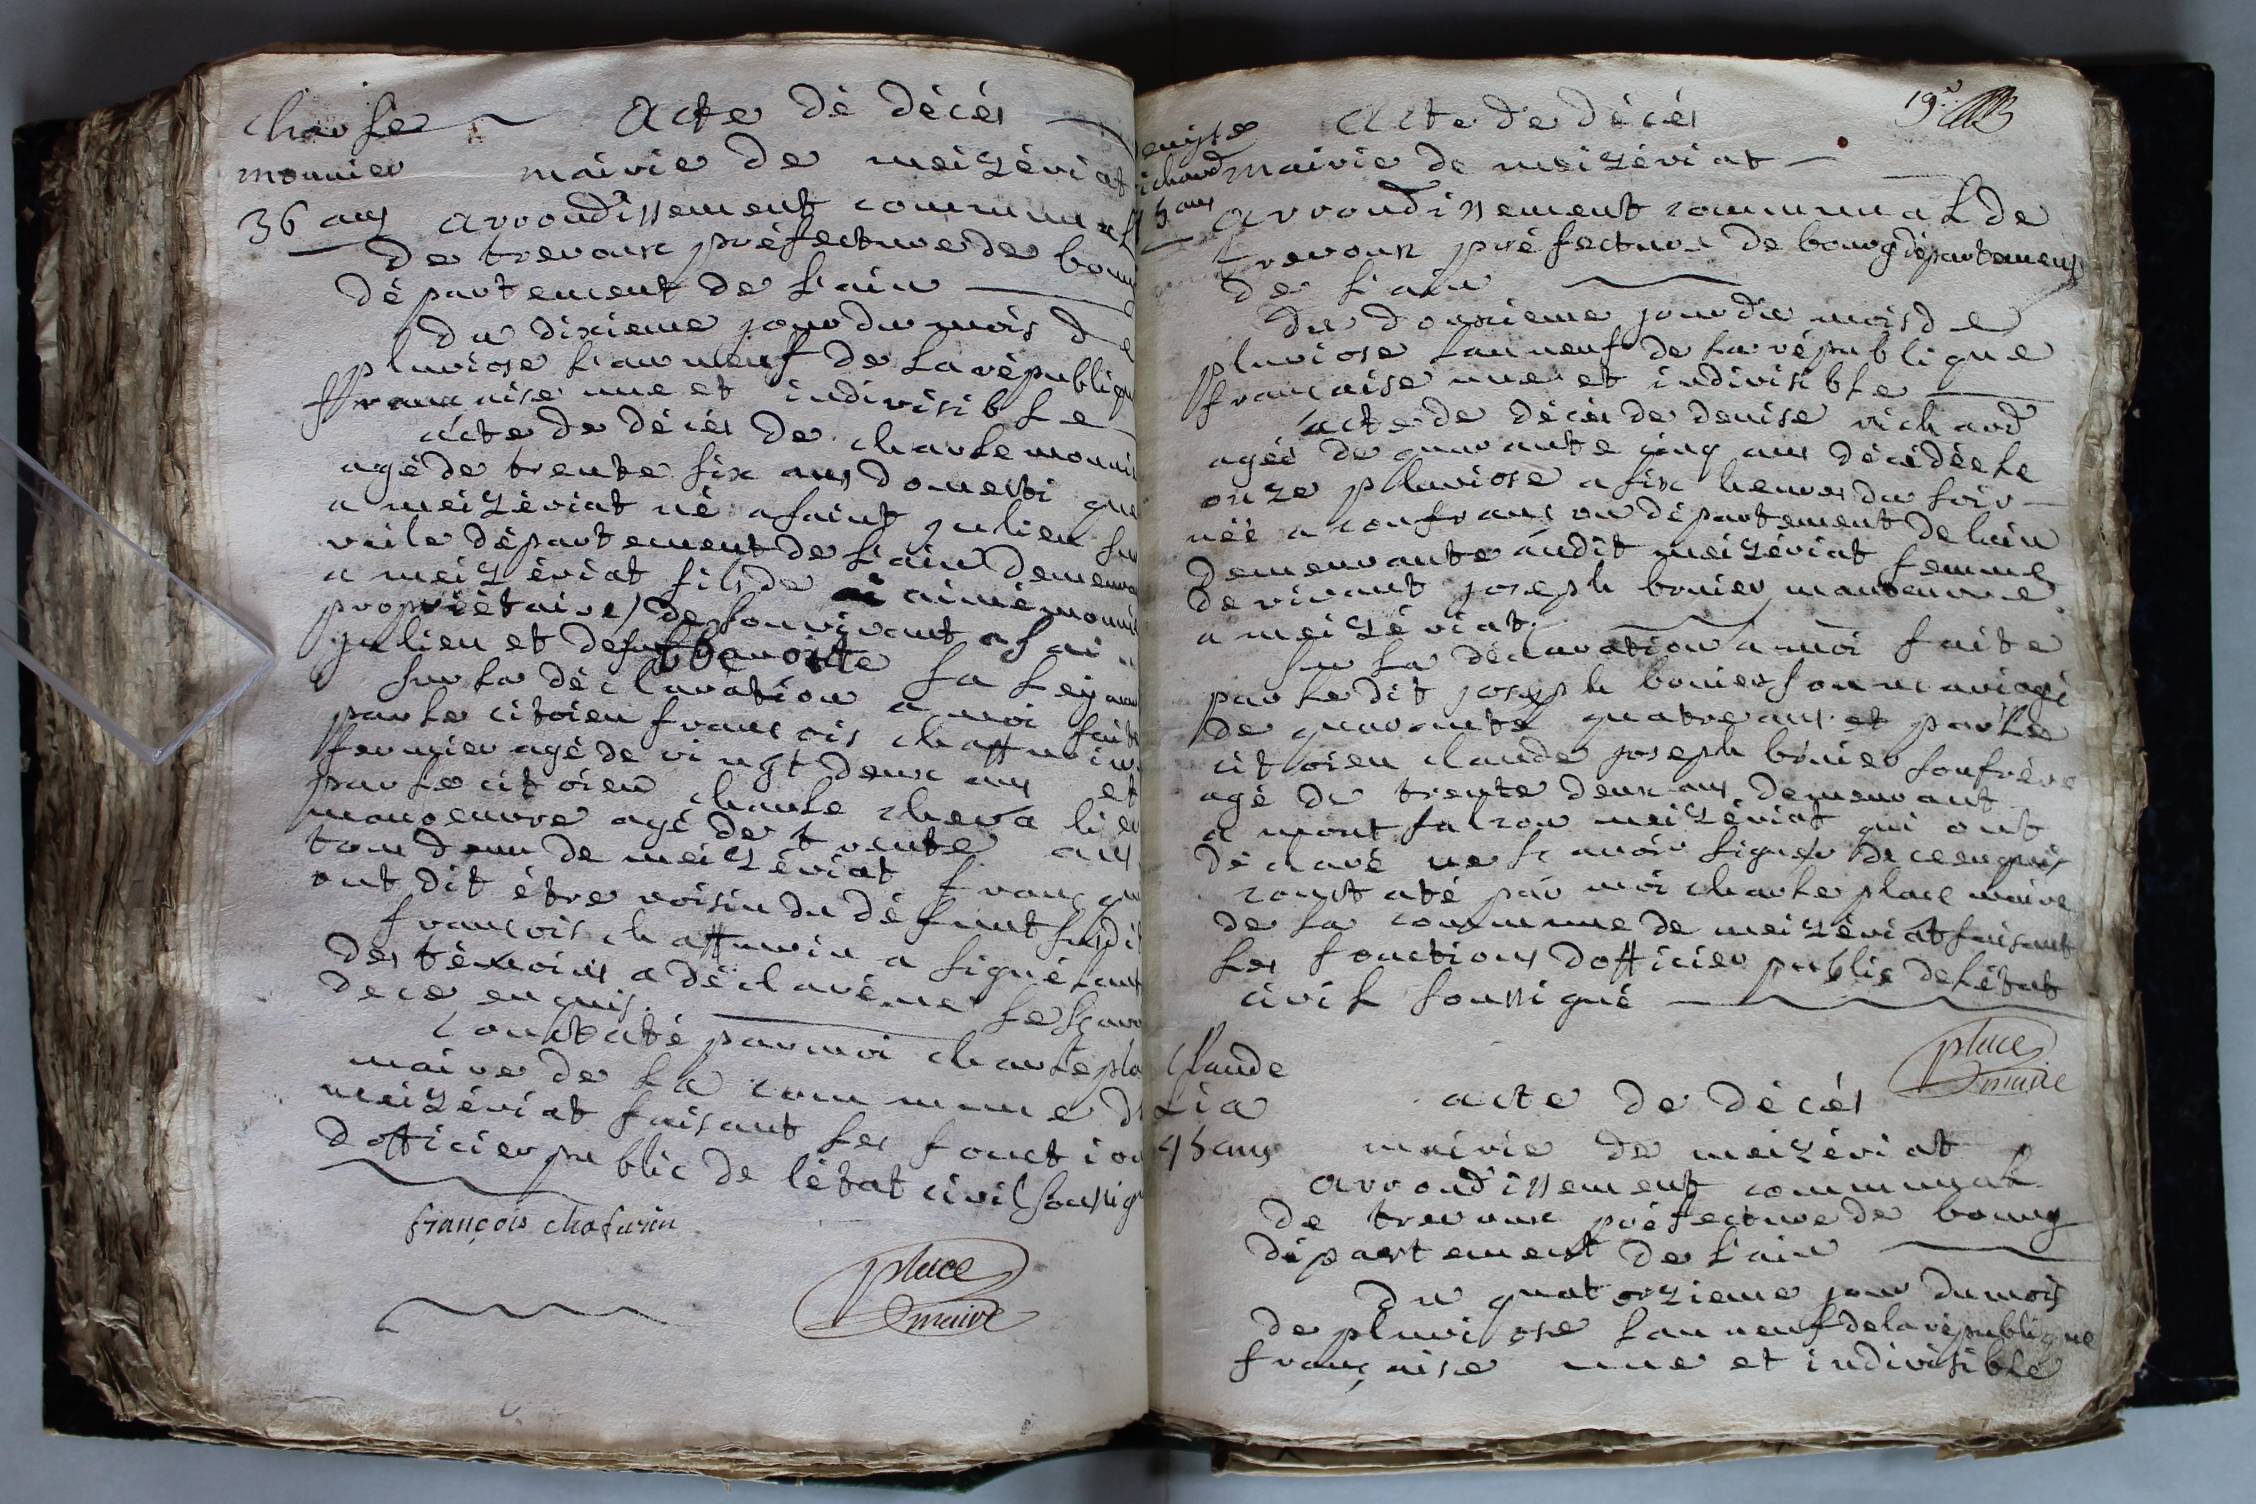 charle
monnier
36 ans
Acte de décés
mairie de meizériat
arrondissement communal
de trevoux préfecture de bour
département de l'ain
du dixieme jour du mois de
pluviose l'an neuf de la républiqu
francaise une et indivisible
acte de décés de charle monni
agé de trente six ans domesti que
a meizériat né a saint julien su
veile département de l'ain demeura
a meizériat fils de aimé monni
propriétaire de son vivant a sai
julien et de benoite la
sur la déclaration a moi faite
par le citoien francois chaffurin
fermier agé de vingt deux ans et
par le citoien charle cheva lier
manoeuvre agé de trente ans
tou deux de meizériat
ont dit être voisin du défunt
francois chaffurin a signé l'aut
des témoins a déclaré ne le sçavo
de ce enquis
constaté par moi charle pla
maire de la commune de
meizériat faisant les fonction
dofficier public de létat civil soussign
françois chafurin
place
maire
19e
enise
ichard
5 ans
Acte de décés
mairie de meizériat
arrondissement communal de
trevoux préfecture de bourg département
de l'ain
du douzieme jour du mois de
pluviose l'an neuf de la république
française une et indivisible
acte de décés de denise richard
agéé de quarante cinq ans décédée le
onze pluviose a six heures du soir
néé a confrançon département de lain
demeurante audit meizériat femme
de vivant joseph bonier manoeuvre
a meizériat
sur la déclaration a moi faite
par le dit joseph bonier son mari agé
de quarante quatre ans et par le
citoien claude joseph bonier son frére
agé de trente deux ans demeurant
a mont falcon meizériat qui ont
déclaré ne sçavoir signer de ce enquis
constaté par moi charle place maire
de la commune de meizériat faisant
les fonctions dofficier public de létat
civil soussigné
place
maire
Claude
Lia
45 ans
acte de décés
mairie de meizériat
arrondissement communal
de trevoux préfecture de bourg
département de l'ain
du quatorzieme jour du mois
de pluviose l'an neuf de la république
française une et indivisible